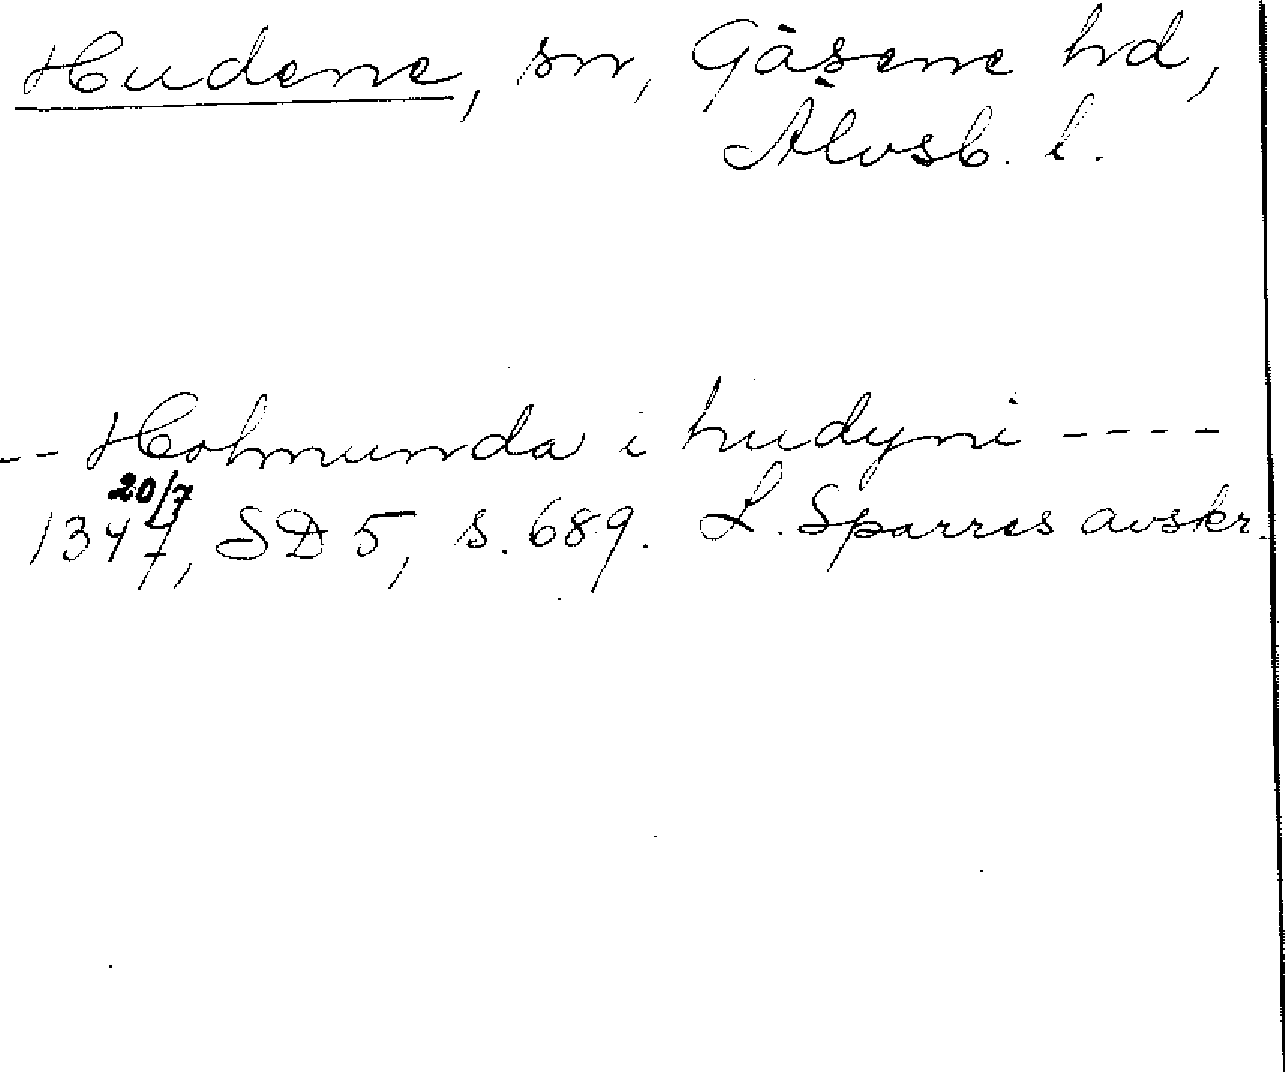 Hudene, sn, Gäsene hd,
Älvsb. l.
-- Holmunda i hudyni ----
20/7
1347, SD 5, s. 689. L. Sparres avskr.